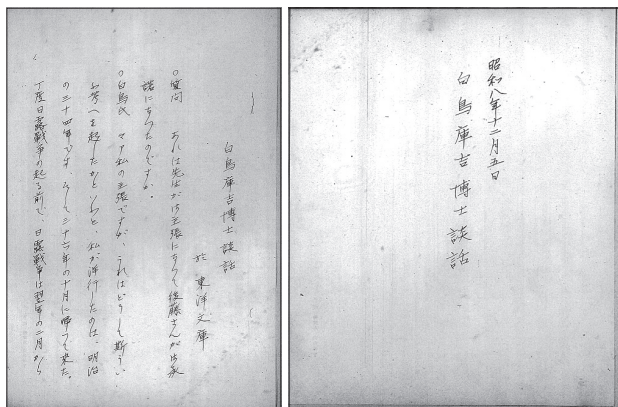 昭和八年十二月五日
白鳥庫吉博士談話
白鳥庫吉博士談話
於東洋文庫
○質問 あれは先生が御主張になつて後藤さんが御承
諾になつたのですか。
○白鳥氏 マア私の主張ですが、それはどうして斯うい
ふ考へを起したかといふと、私が洋行したのは、明治
の三十四年です。そして三十六年の十月に帰つて来た。
丁度日露戦争の起る前で、日露戦争は翌年の二月から